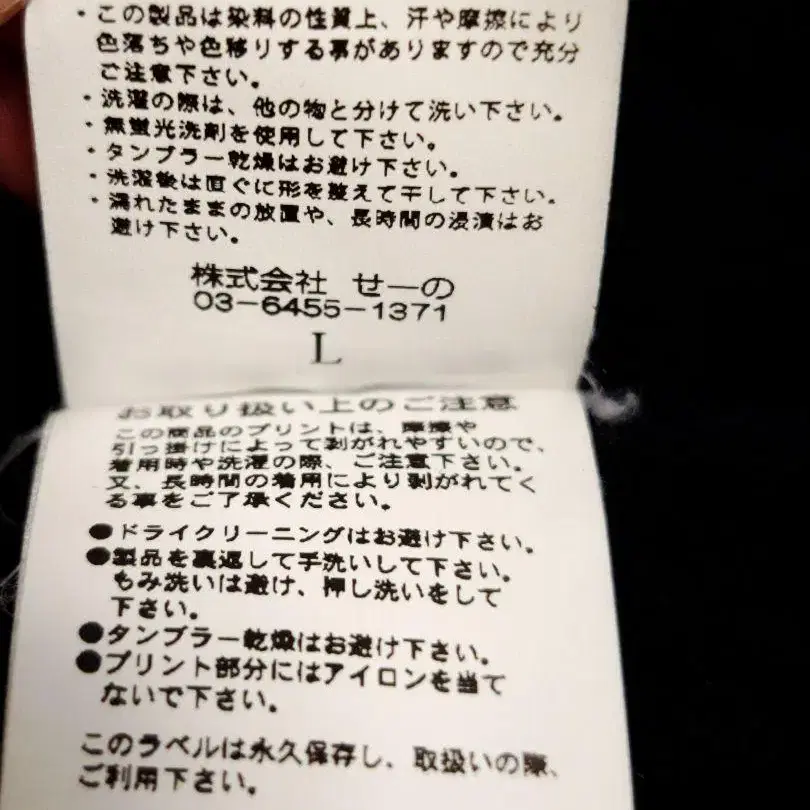 ・この製品は染料の性質上、汗や摩擦により
色落ちや色移りする事がありますので充分
ご注意下さい。
・洗濯の際は、他の物と分けて洗い下さい。
・無蛍光洗剤を使用して下さい。
・タンブラー乾燥はお避け下さい。
・洗濯後は直ぐに形を整えて干して下さい。
・濡れたままの放置や、長時間の浸漬はお
避け下さい。
株式会社 せーの
03-6455-1371
L
お取り扱い上のご注意
この商品のプリントは、摩擦や
引っ掛けによって剥がれやすいので、
着用時や洗濯の際、ご注意下さい。
又、長時間の着用により剥がれてく
る事をご了承ください。
●ドライクリーニングはお避け下さい。
●製品を裏返して手洗いして下さい。
もみ洗いは避け、押し洗いをして
下さい。
●タンブラー乾燥はお避け下さい。
●プリント部分にはアイロンを当て
ないで下さい。
このラベルは永久保存し、取扱いの際、
ご利用下さい。